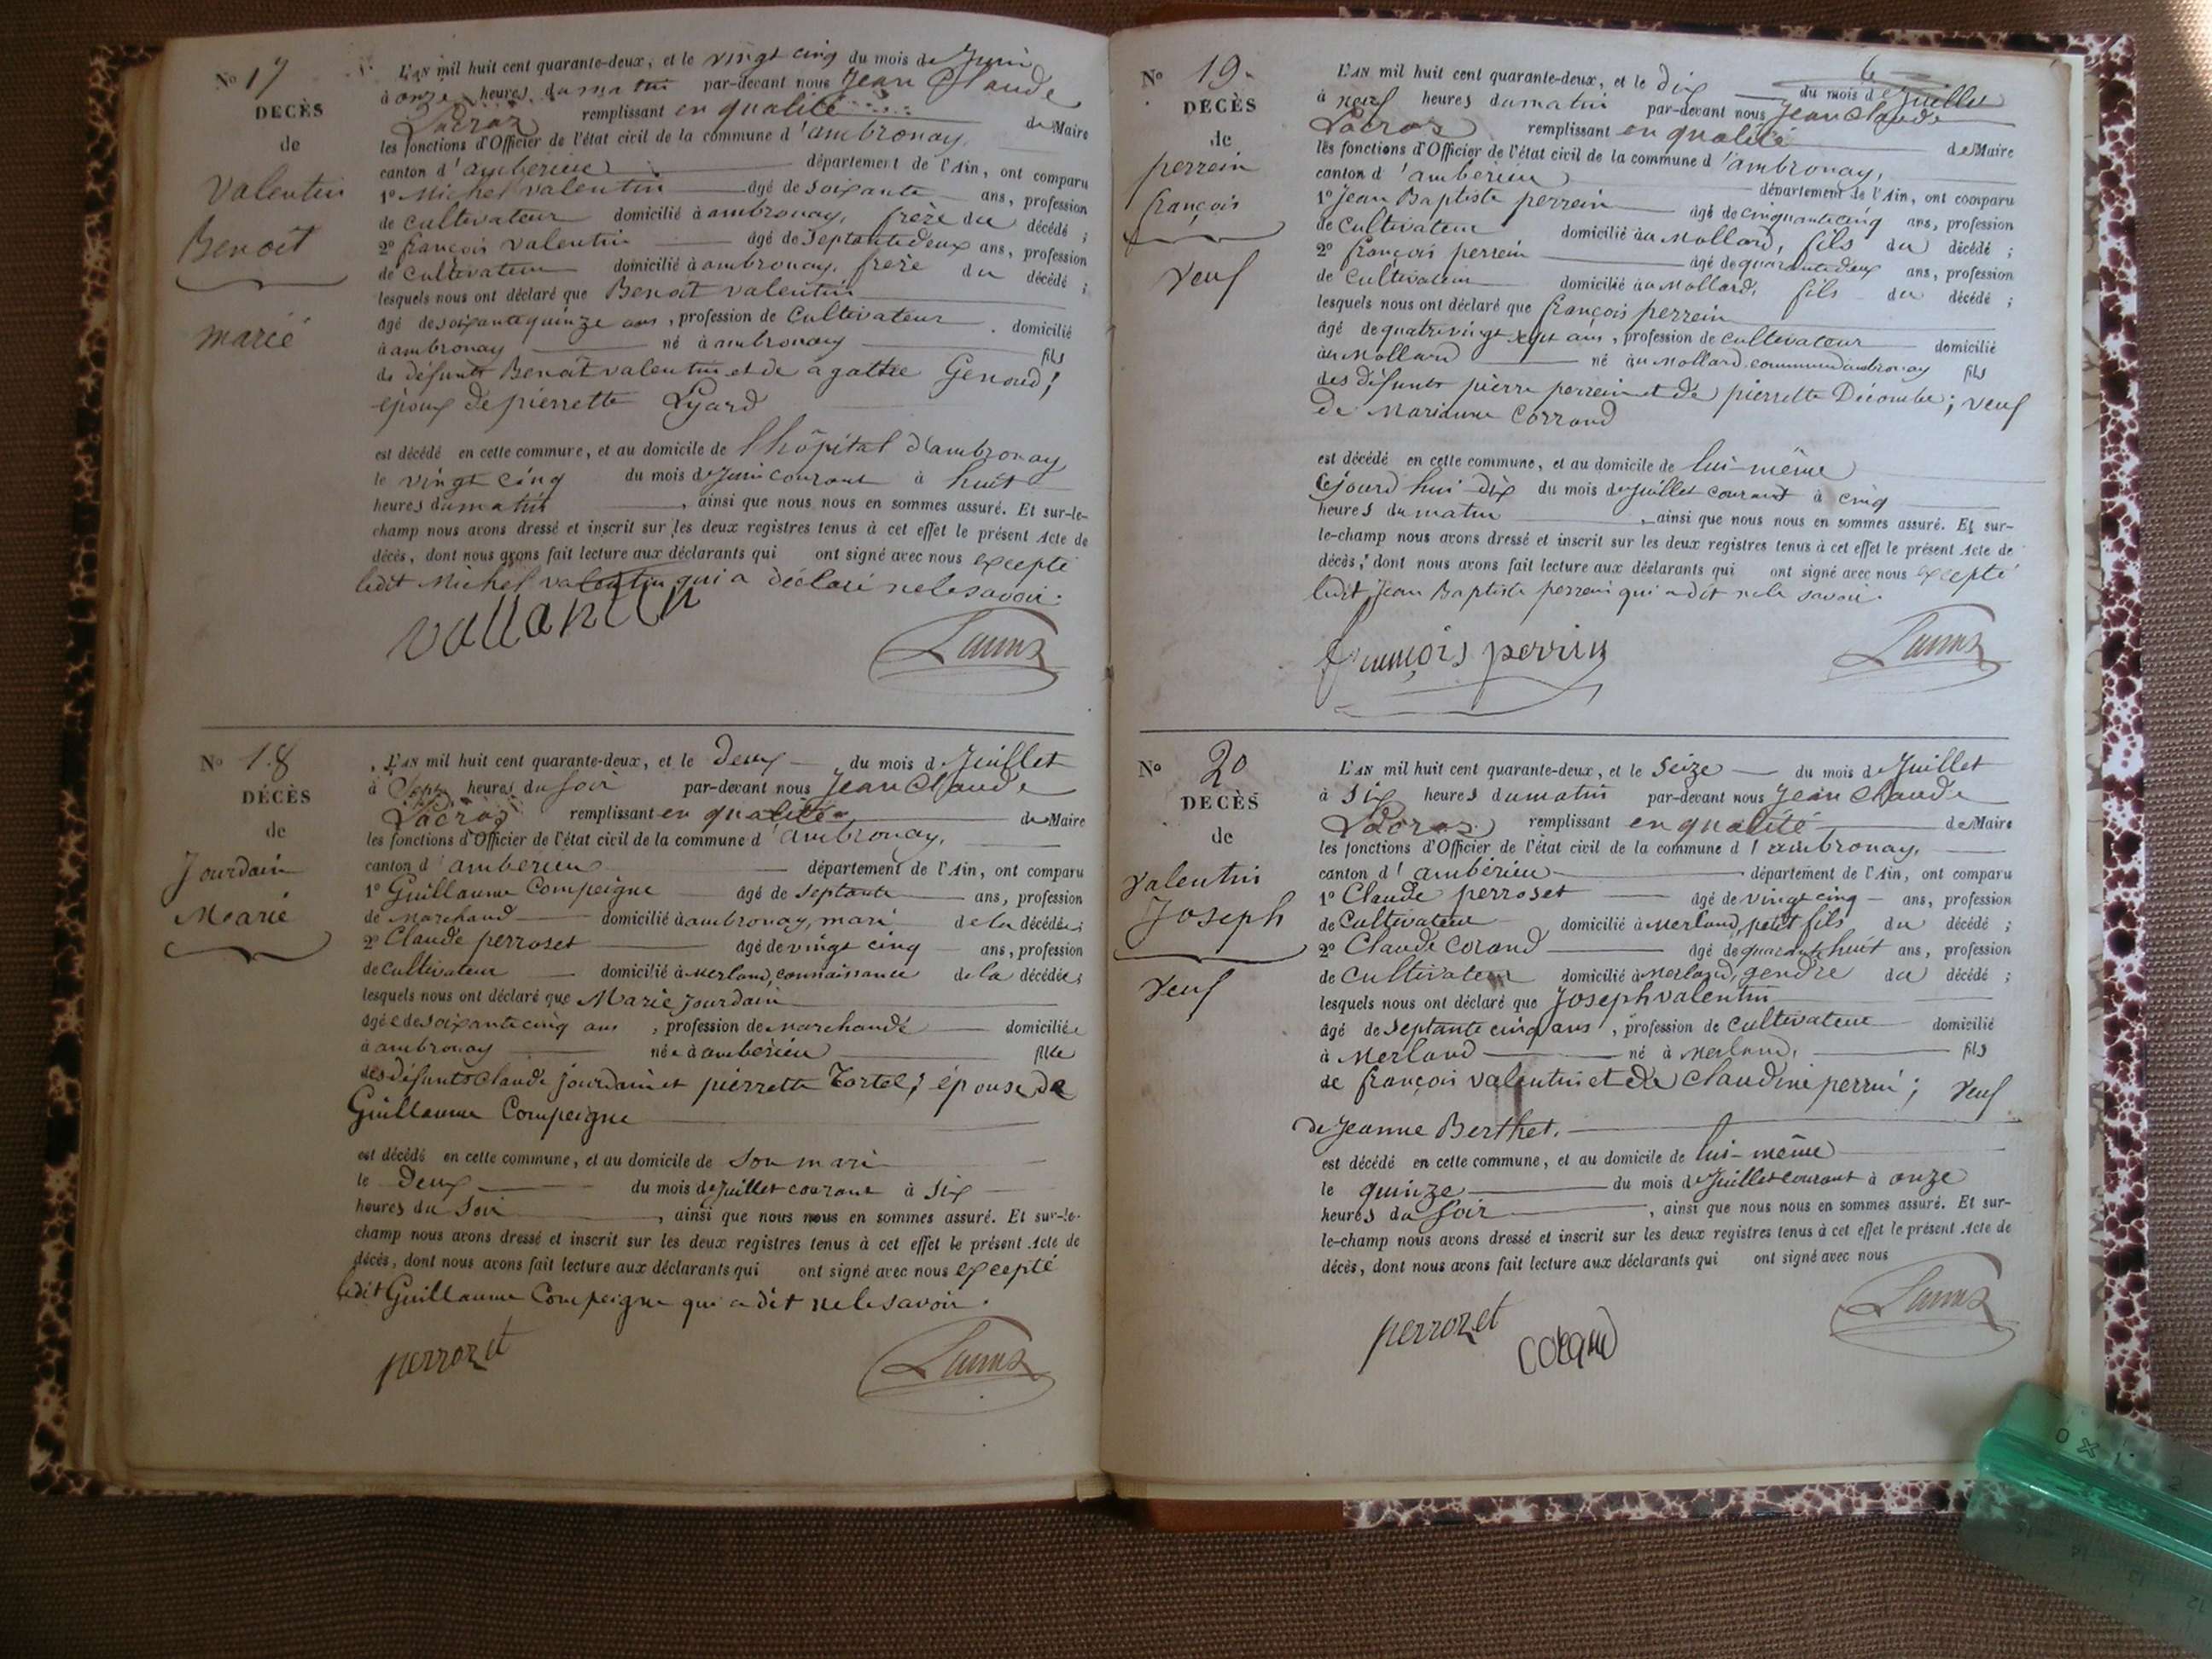 N° 17
DECÈS
de
Valentin
Benoit
marié
L'AN mil huit cent quarante-deux, et le vingt cinq du mois de Juin
à onze heures du matin par-devant nous Jean Claude
Lacroz remplissant en qualité de Maire
les fonctions d'Officier de l'état civil de la commune d'ambronay,
canton d'amberieu département de l'Ain, ont comparu
1° Michel valentin âgé de soixante ans, profession
de cultivateur domicilié à ambronay, frère du décédé ;
2° françois valentin âgé de septante deux ans, profession
de cultivateur domicilié à ambronay, frère du décédé ;
lesquels nous ont déclaré que Benoit valentin
âgé de soixante quinze ans, profession de Cultivateur domicilié
à ambronay né à ambronay fils
de défunts Benoit valentin et de agathe Genoud ;
époux de pierrette Lyard
est décédé en cette commune, et au domicile de l'hôpital d'ambronay
le vingt cinq du mois de Juin courant à huit
heures du matin, ainsi que nous nous en sommes assuré. Et sur-le-
champ nous avons dressé et inscrit sur les deux registres tenus à cet effet le présent Acte de
décès, dont nous avons fait lecture aux déclarants qui ont signé avec nous excepté
ledit Michel valentin qui a déclaré ne le savoir.
vallantin
N° 18
DÉCÈS
de
Jourdain
Marie
L'AN mil huit cent quarante-deux, et le Deux du mois de Juillet
à Sept heures du Soir par-devant nous Jean Claude
Lacroz remplissant en qualité de Maire
les fonctions d'Officier de l'état civil de la commune d'ambronay,
canton d'amberieu département de l'Ain, ont comparu
1° Guillaume Compeigne âgé de septante ans, profession
de Marchand domicilié à ambronay, mari de la décédée ;
2° Claude perroset âgé de vingt cinq ans, profession
de cultivateur domicilié à Merland, connaissance de la décédée ;
lesquels nous ont déclaré que Marie Jourdain
âgée de soixante cinq ans, profession de Marchande domiciliée
à ambronay née à amberieu fille
des défunts Claude jourdain et pierrette Tortel ; épouse de
Guillaume Compeigne
est décédé en cette commune, et au domicile de Son mari
le Deux du mois de Juillet courant à Six
heures du Soir, ainsi que nous nous en sommes assuré. Et sur-le-
champ nous avons dressé et inscrit sur les deux registres tenus à cet effet le présent Acte de
décès, dont nous avons fait lecture aux déclarants qui ont signé avec nous excepté
ledit Guillaume Compeigne qui a dit ne le savoir.
perrozet
6
N° 19.
DECÈS
de
perrein
françois
Veuf
L'AN mil huit cent quarante-deux, et le dix du mois de Juillet
à neuf heures du matin par-devant nous Jean Claude
Lacroz remplissant en qualité de Maire
les fonctions d'Officier de l'état civil de la commune d'ambronay,
canton d'amberieu département de l'Ain, ont comparu
1° Jean Baptiste perrein âgé de cinquante cinq ans, profession
de Cultivateur domicilié au Mollard, fils du décédé ;
2° françois perrein âgé de quarante deux ans, profession
de Cultivateur domicilié au Mollard, fils du décédé ;
lesquels nous ont déclaré que françois perrein
âgé de quatre vingt sept ans, profession de cultivateur domicilié
au Mollard né au Mollard, commune d'ambronay fils
des défunts pierre perrein et de pierrette Décombe ; veuf
de Marianne Corrand
est décédé en cette commune, et au domicile de lui-même
Cejourd'hui dix du mois de Juillet courant à cinq
heures du matin, ainsi que nous nous en sommes assuré. Et sur-
le-champ nous avons dressé et inscrit sur les deux registres tenus à cet effet le présent Acte de
décès, dont nous avons fait lecture aux déclarants qui ont signé avec nous excepté
ledit Jean Baptiste perrein qui a dit ne le savoir.
françois perrin
N° 20
DECÈS
de
Valentin
Joseph
Veuf
L'AN mil huit cent quarante-deux, et le Seize du mois de Juillet
à Six heures du matin par-devant nous Jean Claude
Lacroz remplissant en qualité de Maire
les fonctions d'Officier de l'état civil de la commune d'ambronay,
canton d'ambérieu département de l'Ain, ont comparu
1° Claude perroset âgé de vingt cinq ans, profession
de Cultivateur domicilié à Merland, petit fils du décédé ;
2° Claude Corand âgé de quarante huit ans, profession
de Cultivateur domicilié à Merland, gendre du décédé ;
lesquels nous ont déclaré que Joseph valentin
âgé de Septante cinq ans, profession de Cultivateur domicilié
à Merland né à Merland, fils
de françois valentin et de claudine perrin ; Veuf
de Jeanne Berthet.
est décédé en cette commune, et au domicile de lui-même
le quinze du mois de Juillet courant à onze
heures du Soir, ainsi que nous nous en sommes assuré. Et sur-
le-champ nous avons dressé et inscrit sur les deux registres tenus à cet effet le présent Acte de
décès, dont nous avons fait lecture aux déclarants qui ont signé avec nous
perrozet